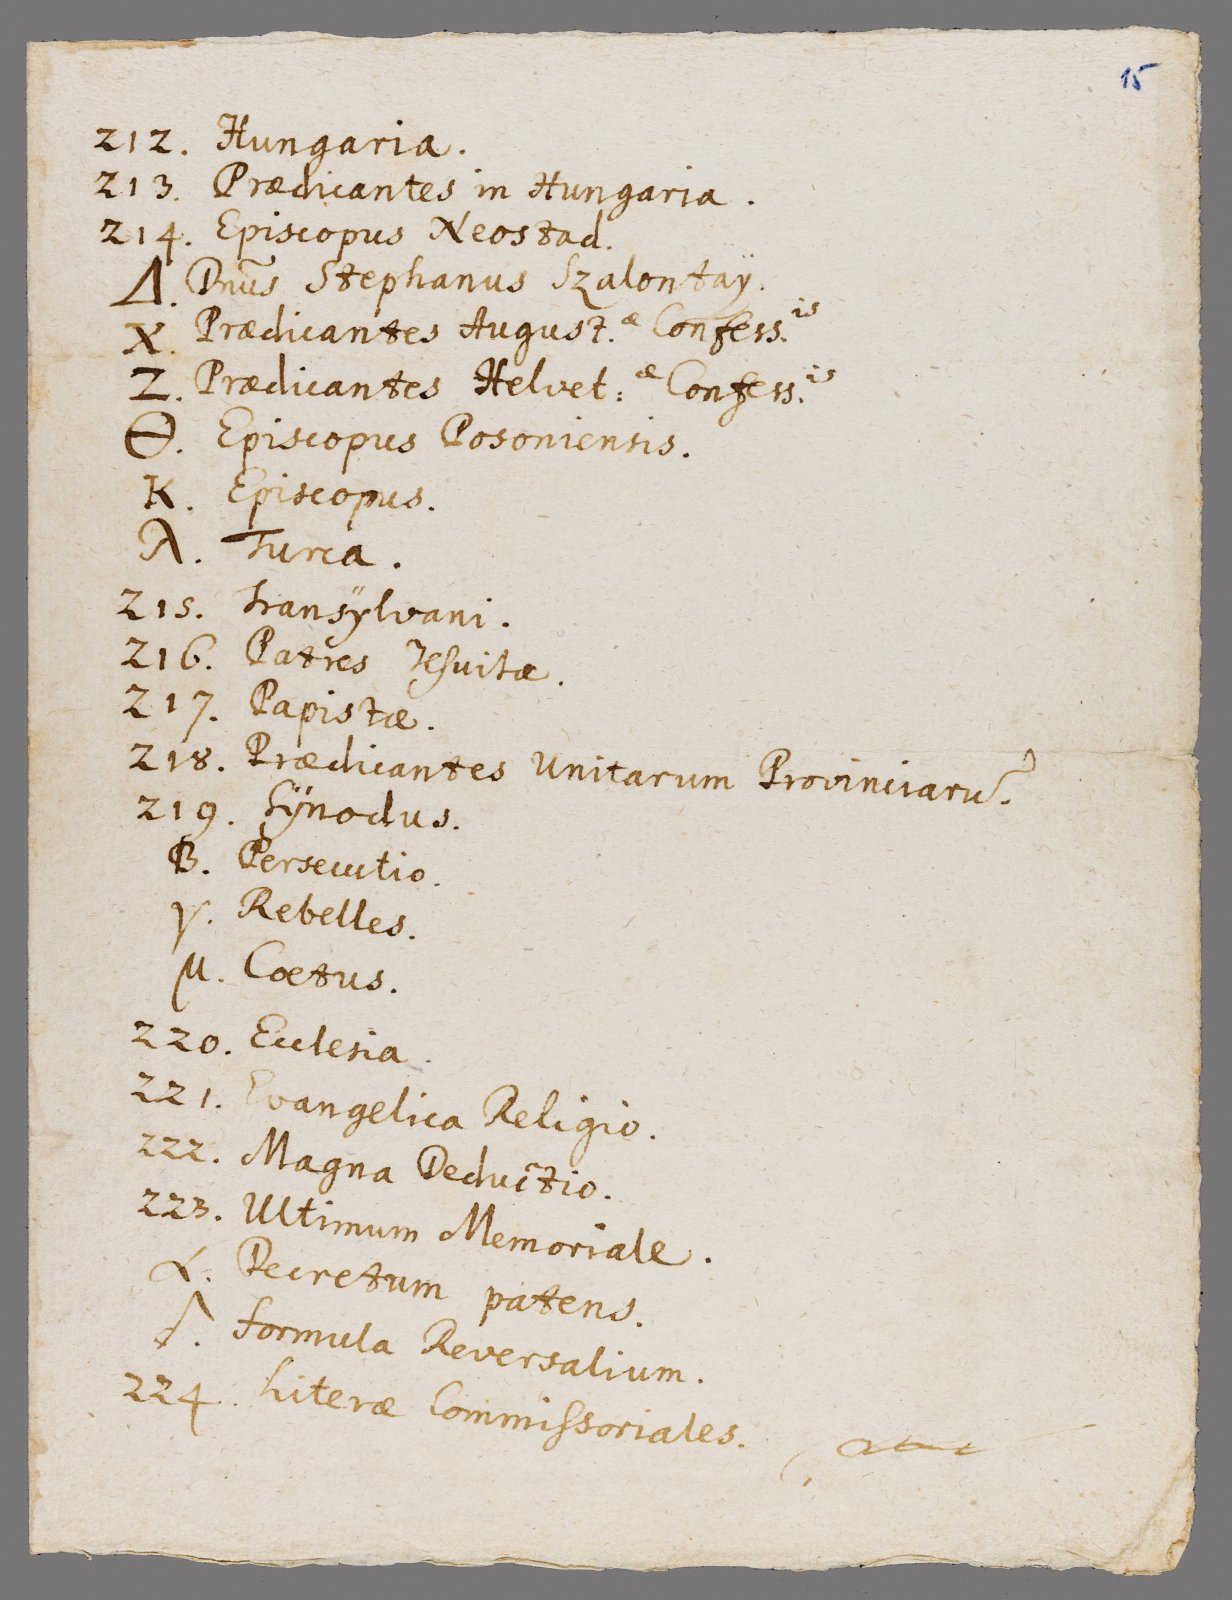 15
212. Hungaria.
213. Prædicantes in Hungaria.
214. Episcopus Neostad.
Δ. Dnūs Stephanus Szalontaÿ.
X. Prædicantes August.æ Confess.is
Z. Prædicantes Helvet:æ Confess.is
Θ. Episcopus Posoniensis.
K. Episcopus.
λ. Turca.
215. Transÿlvani.
216. Patres Jesuitæ.
217. Papistæ.
218. Prædicantes Unitarum Provinciarū.
219. Sÿnodus.
B. Persecutio.
γ. Rebelles.
μ. Coetus.
220. Ecclesia.
221. Evangelica Religio.
222. Magna Deductio.
223. Ultimum Memoriale.
α. Decretum patens.
. Formula Reversalium.
224. Literæ Commissoriales.